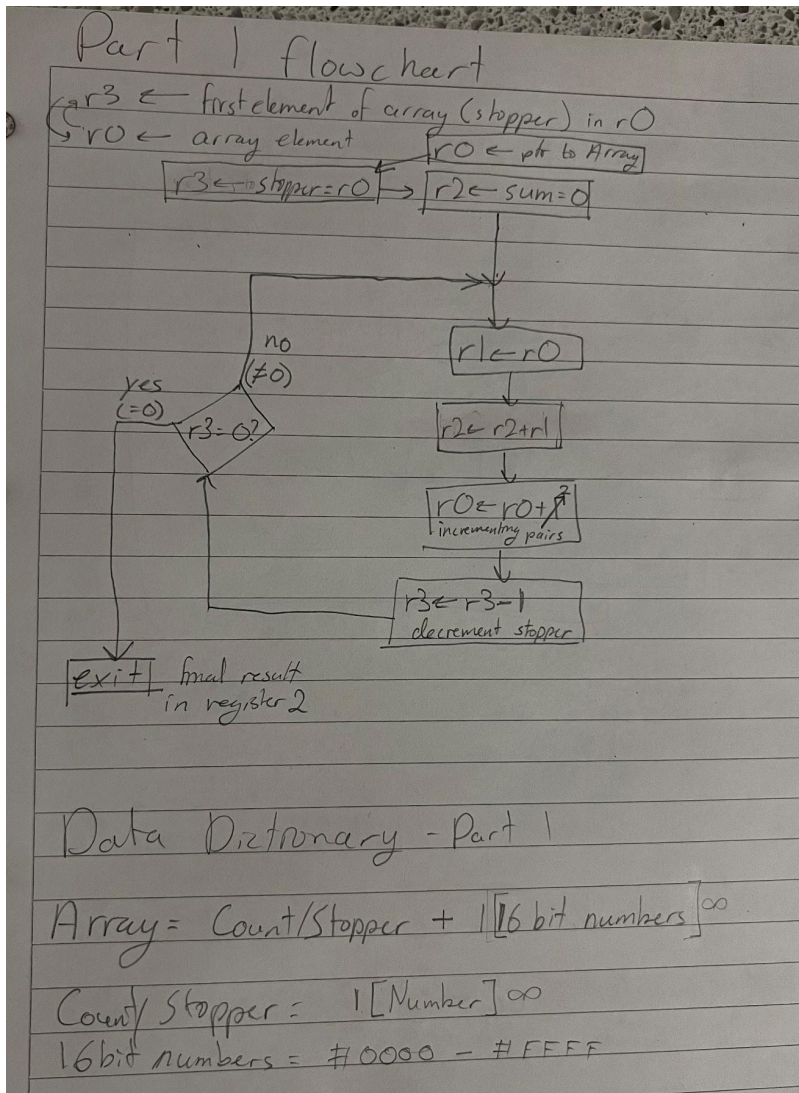 Part 1 flowchart
r3 ← first element of array (stopper) in r0
r0 ← array element
r0 ← ptr to Array
r3 ← stopper=r0
r2 ← sum=0
no
(≠0)
r1 ← r0
yes
(=0)
r3=0?
r2 ← r2+r1
r0 ← r0+2
incrementing pairs
r3 ← r3-1
decrement stopper
exit final result
in register 2
Data Dictionary - Part 1
Array = Count/Stopper + 1[16 bit numbers]∞
Count/Stopper = 1[Number]∞
16bit numbers = #0000 - #FFFF